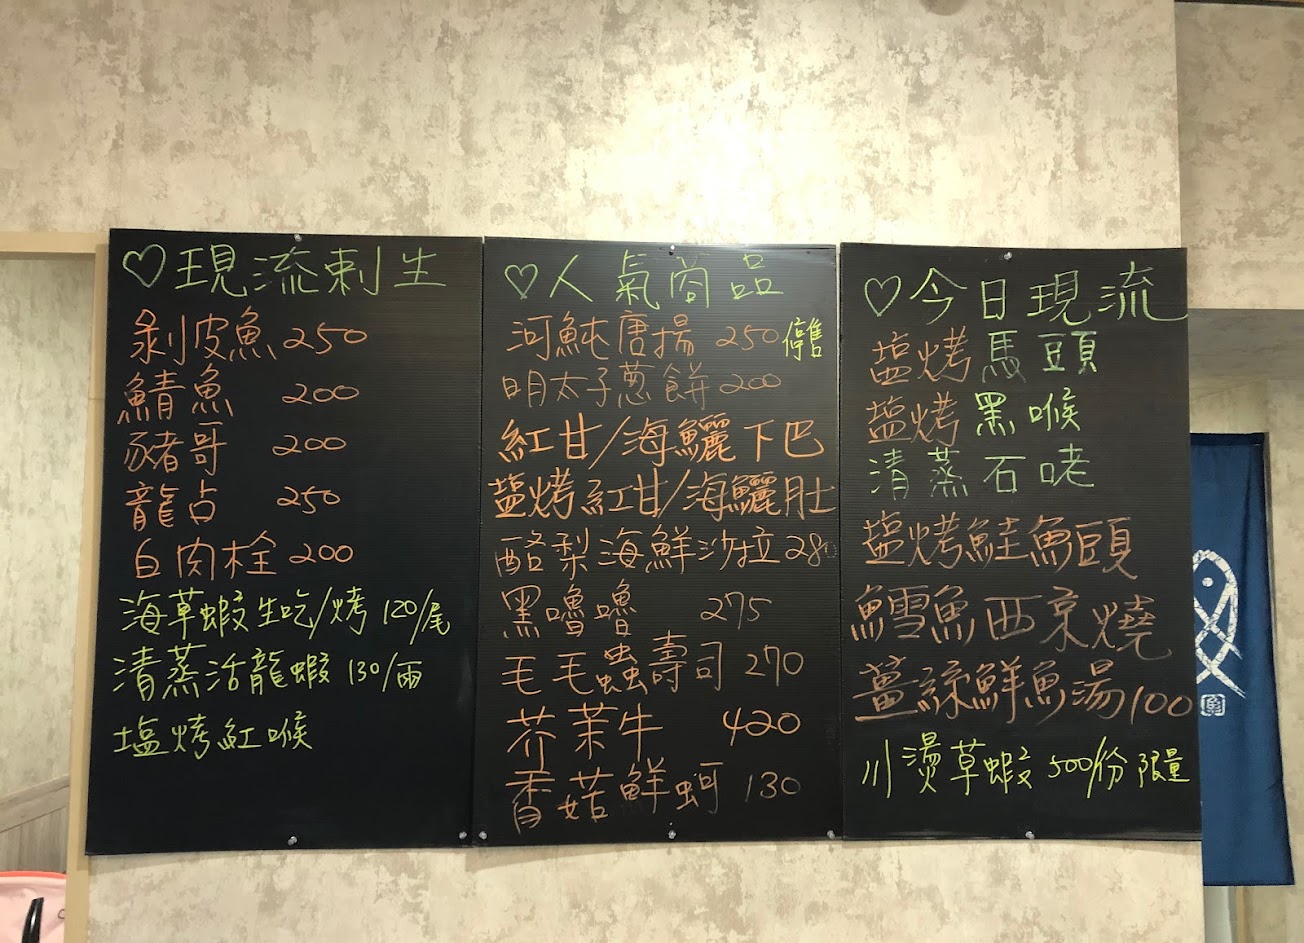 ♡現流刺生
剝皮魚 250
鯖魚 200
豬哥 200
龍占 250
白肉栓 200
海草蝦生吃/烤 120/尾
清蒸活龍蝦 130/兩
塩烤紅喉
♡人氣商品
河魨唐揚 250 停售
明太子蔥餅 200
紅甘/海鱺下巴
塩烤紅甘/海鱺肚
酪梨海鮮沙拉 280
黑嚕嚕 275
毛毛蟲壽司 270
芥茉牛 420
香菇鮮蚵 130
♡今日現流
塩烤馬頭
塩烤黑喉
清蒸石咾
塩烤鮭魚頭
鱈魚西京燒
薑絲鮮魚湯 100
川燙草蝦 500/份 限量